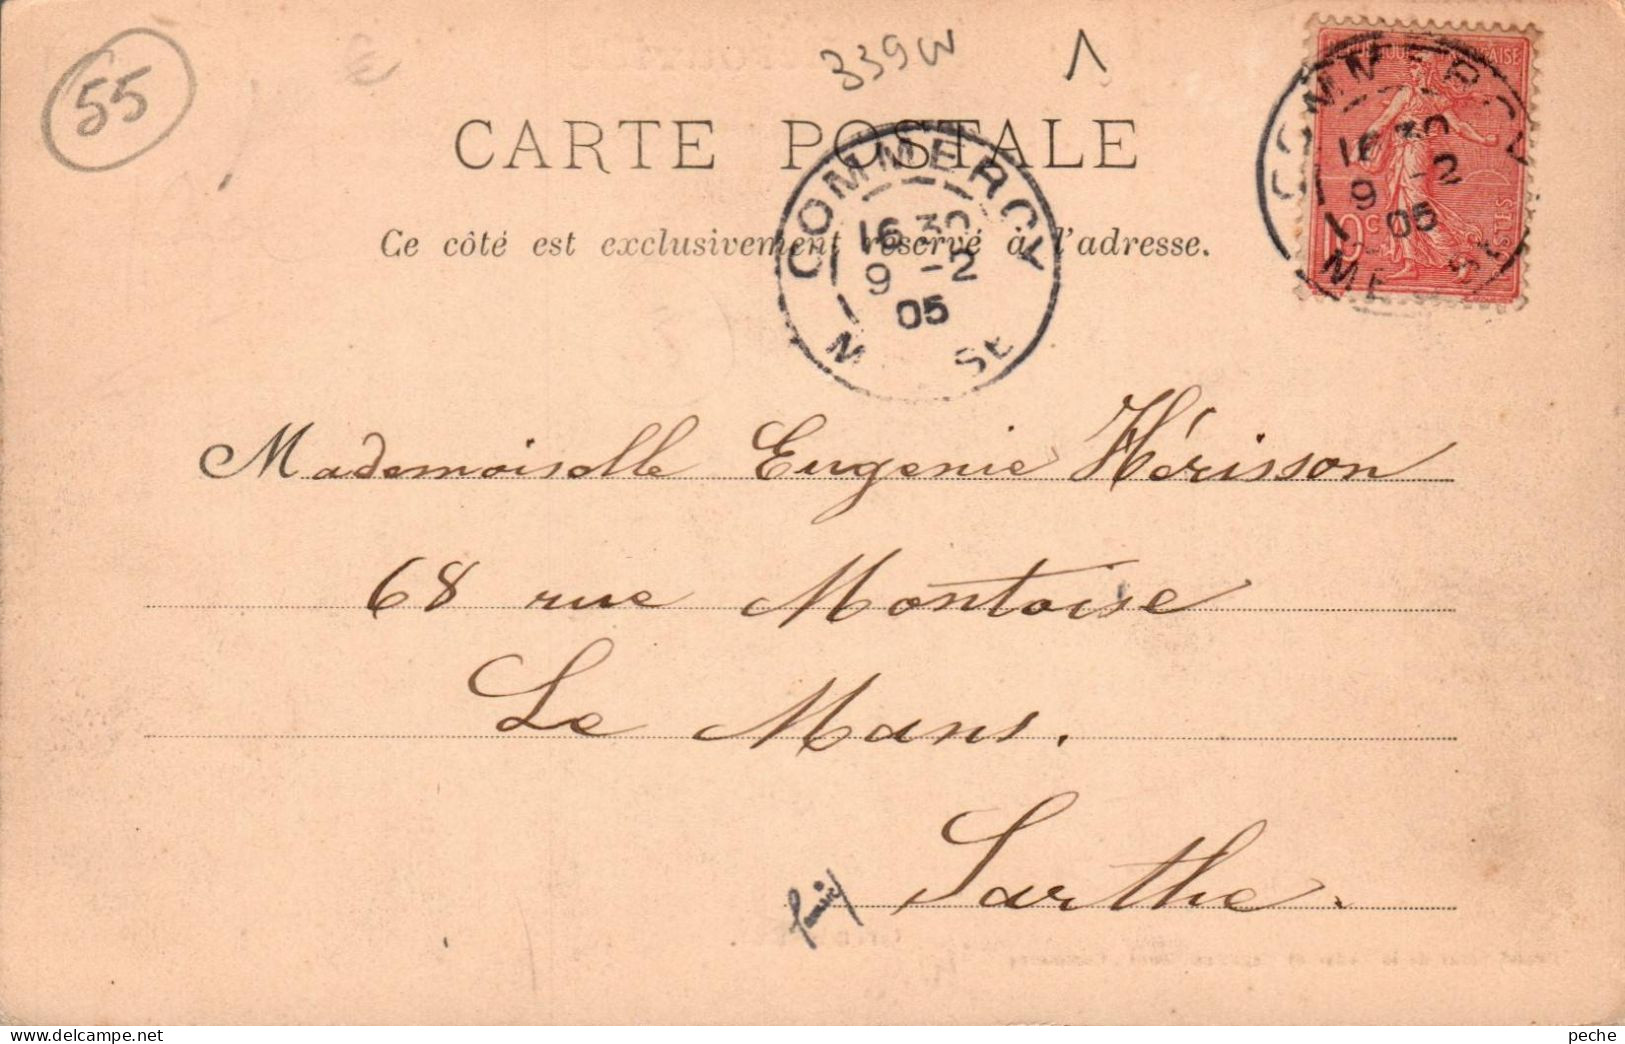 55
339W
1
CARTE POSTALE
Ce côté est exclusivement réservé à l'adresse.
COMMERCY
16 30
9 -2
05
M SE
COMMERCY
16 30
9 -2
05
ME SE
10c
POSTES
Mademoiselle Eugenie Hérisson
68 rue Montoise
Le Mans.
Sarthe.
www.delcampe.net
peche